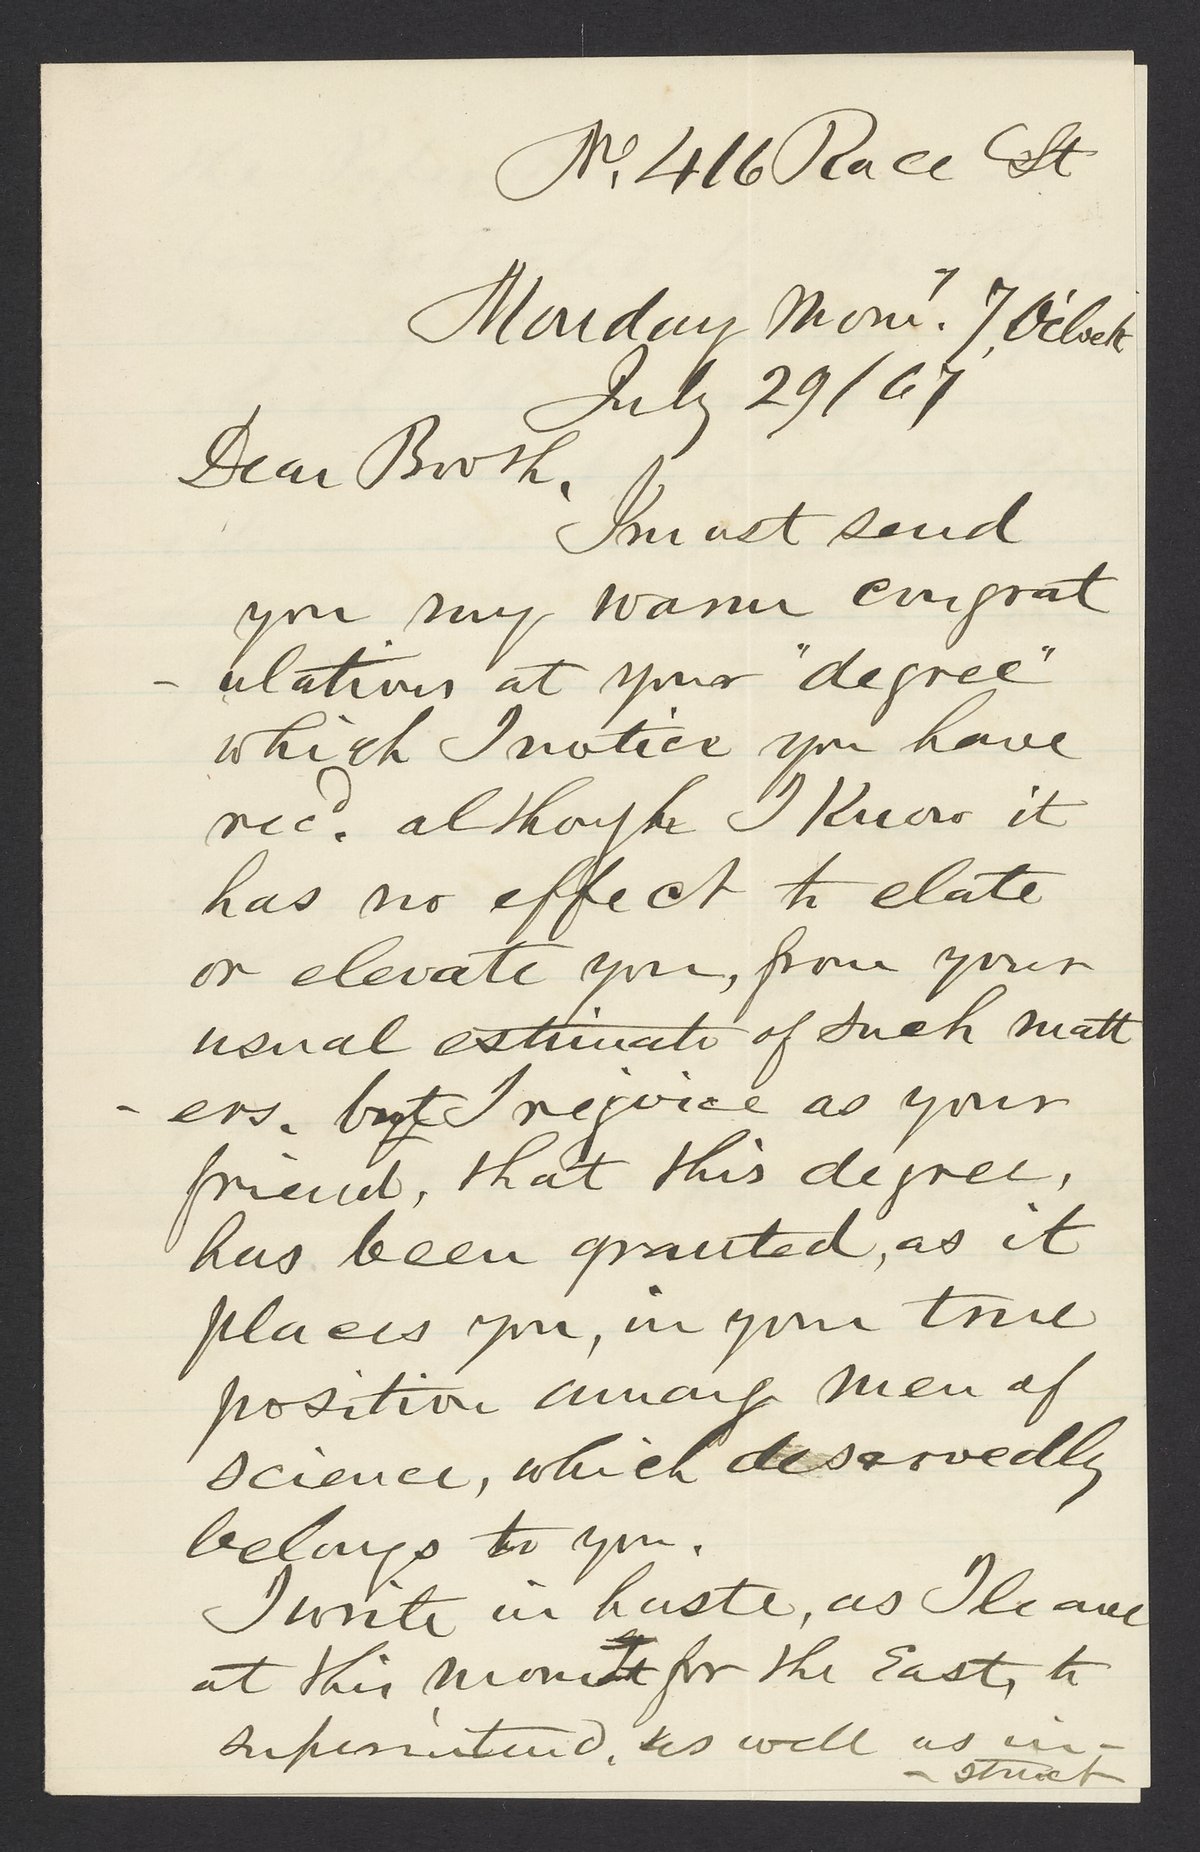 No. 416 Race St
Monday Morng. 7 O'clock
July 29/67
Dear Booth.
I must send
you my warm congrat
- ulations at your "degree"
which I notice you have
recd. although I know it
has no effect to elate
or elevate you, from your
usual estimate of such matt
- ers. but I rejoice as your
friend, that this degree,
has been granted, as it
places you, in your true
position among men of
science, which deservedly
belongs to you.
I write in haste, as I leave
at this moment for the East, to
superintend, as well as in-
- struct